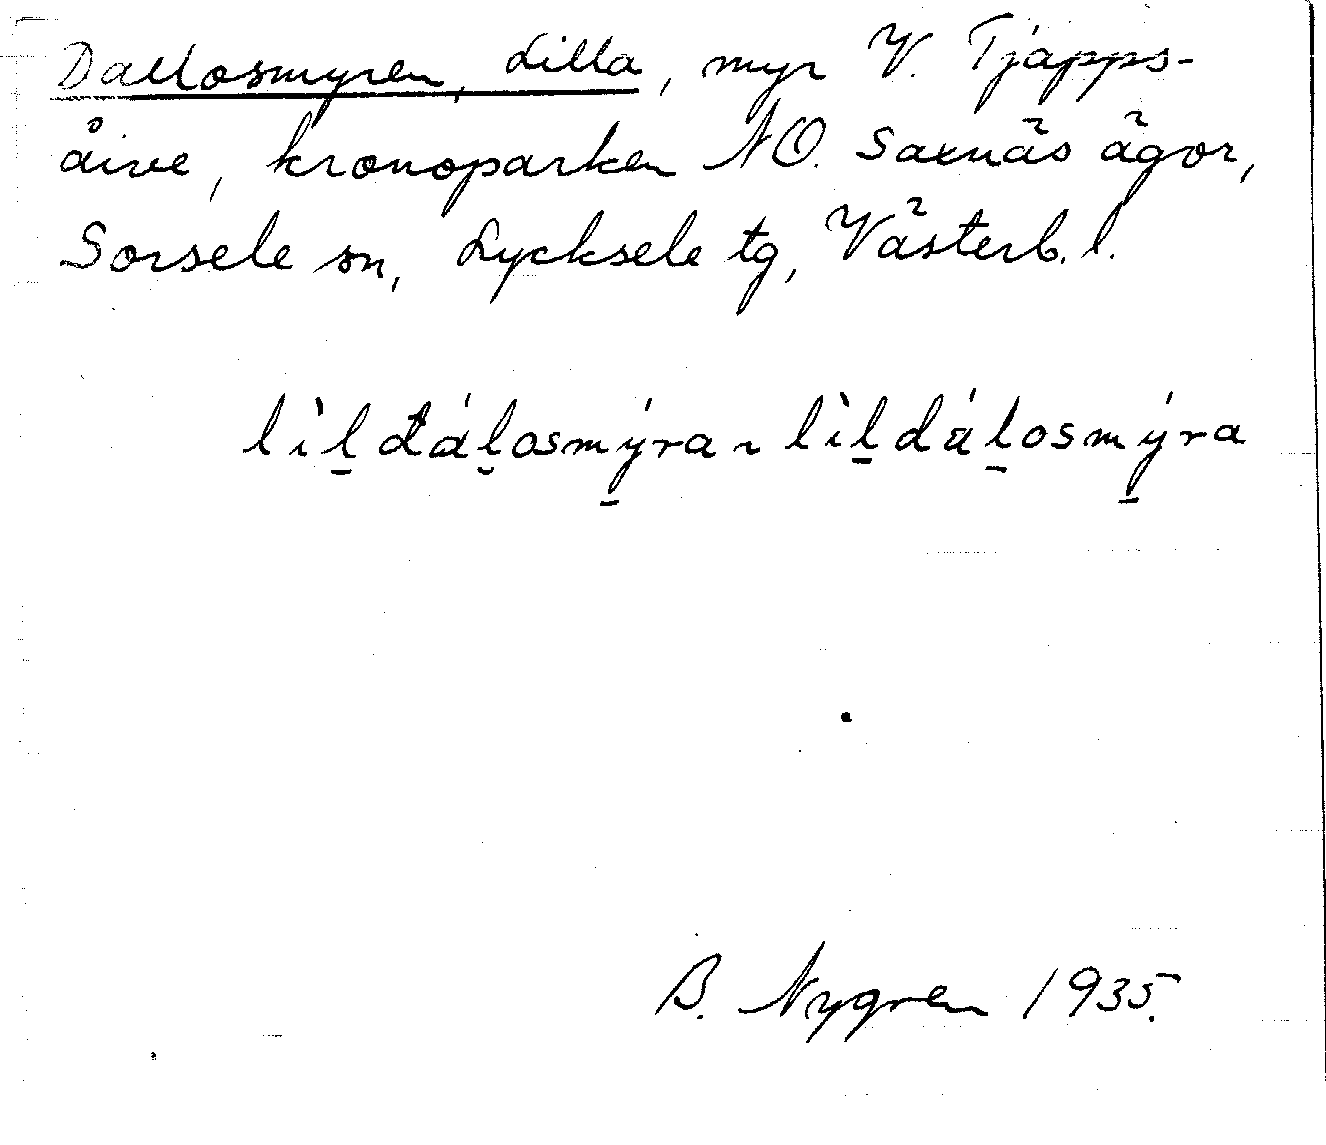 Dallosmyren, Lilla, myr V. Tjapps-
åive, kronoparken NO. Saxnäs ägor,
Sorsele sn, Lycksele tg, Västerb. l.
lìl̠ đál̮osmý̠ra ~ lìl̠dál̠osmý̠ra
B. Nygren 1935.